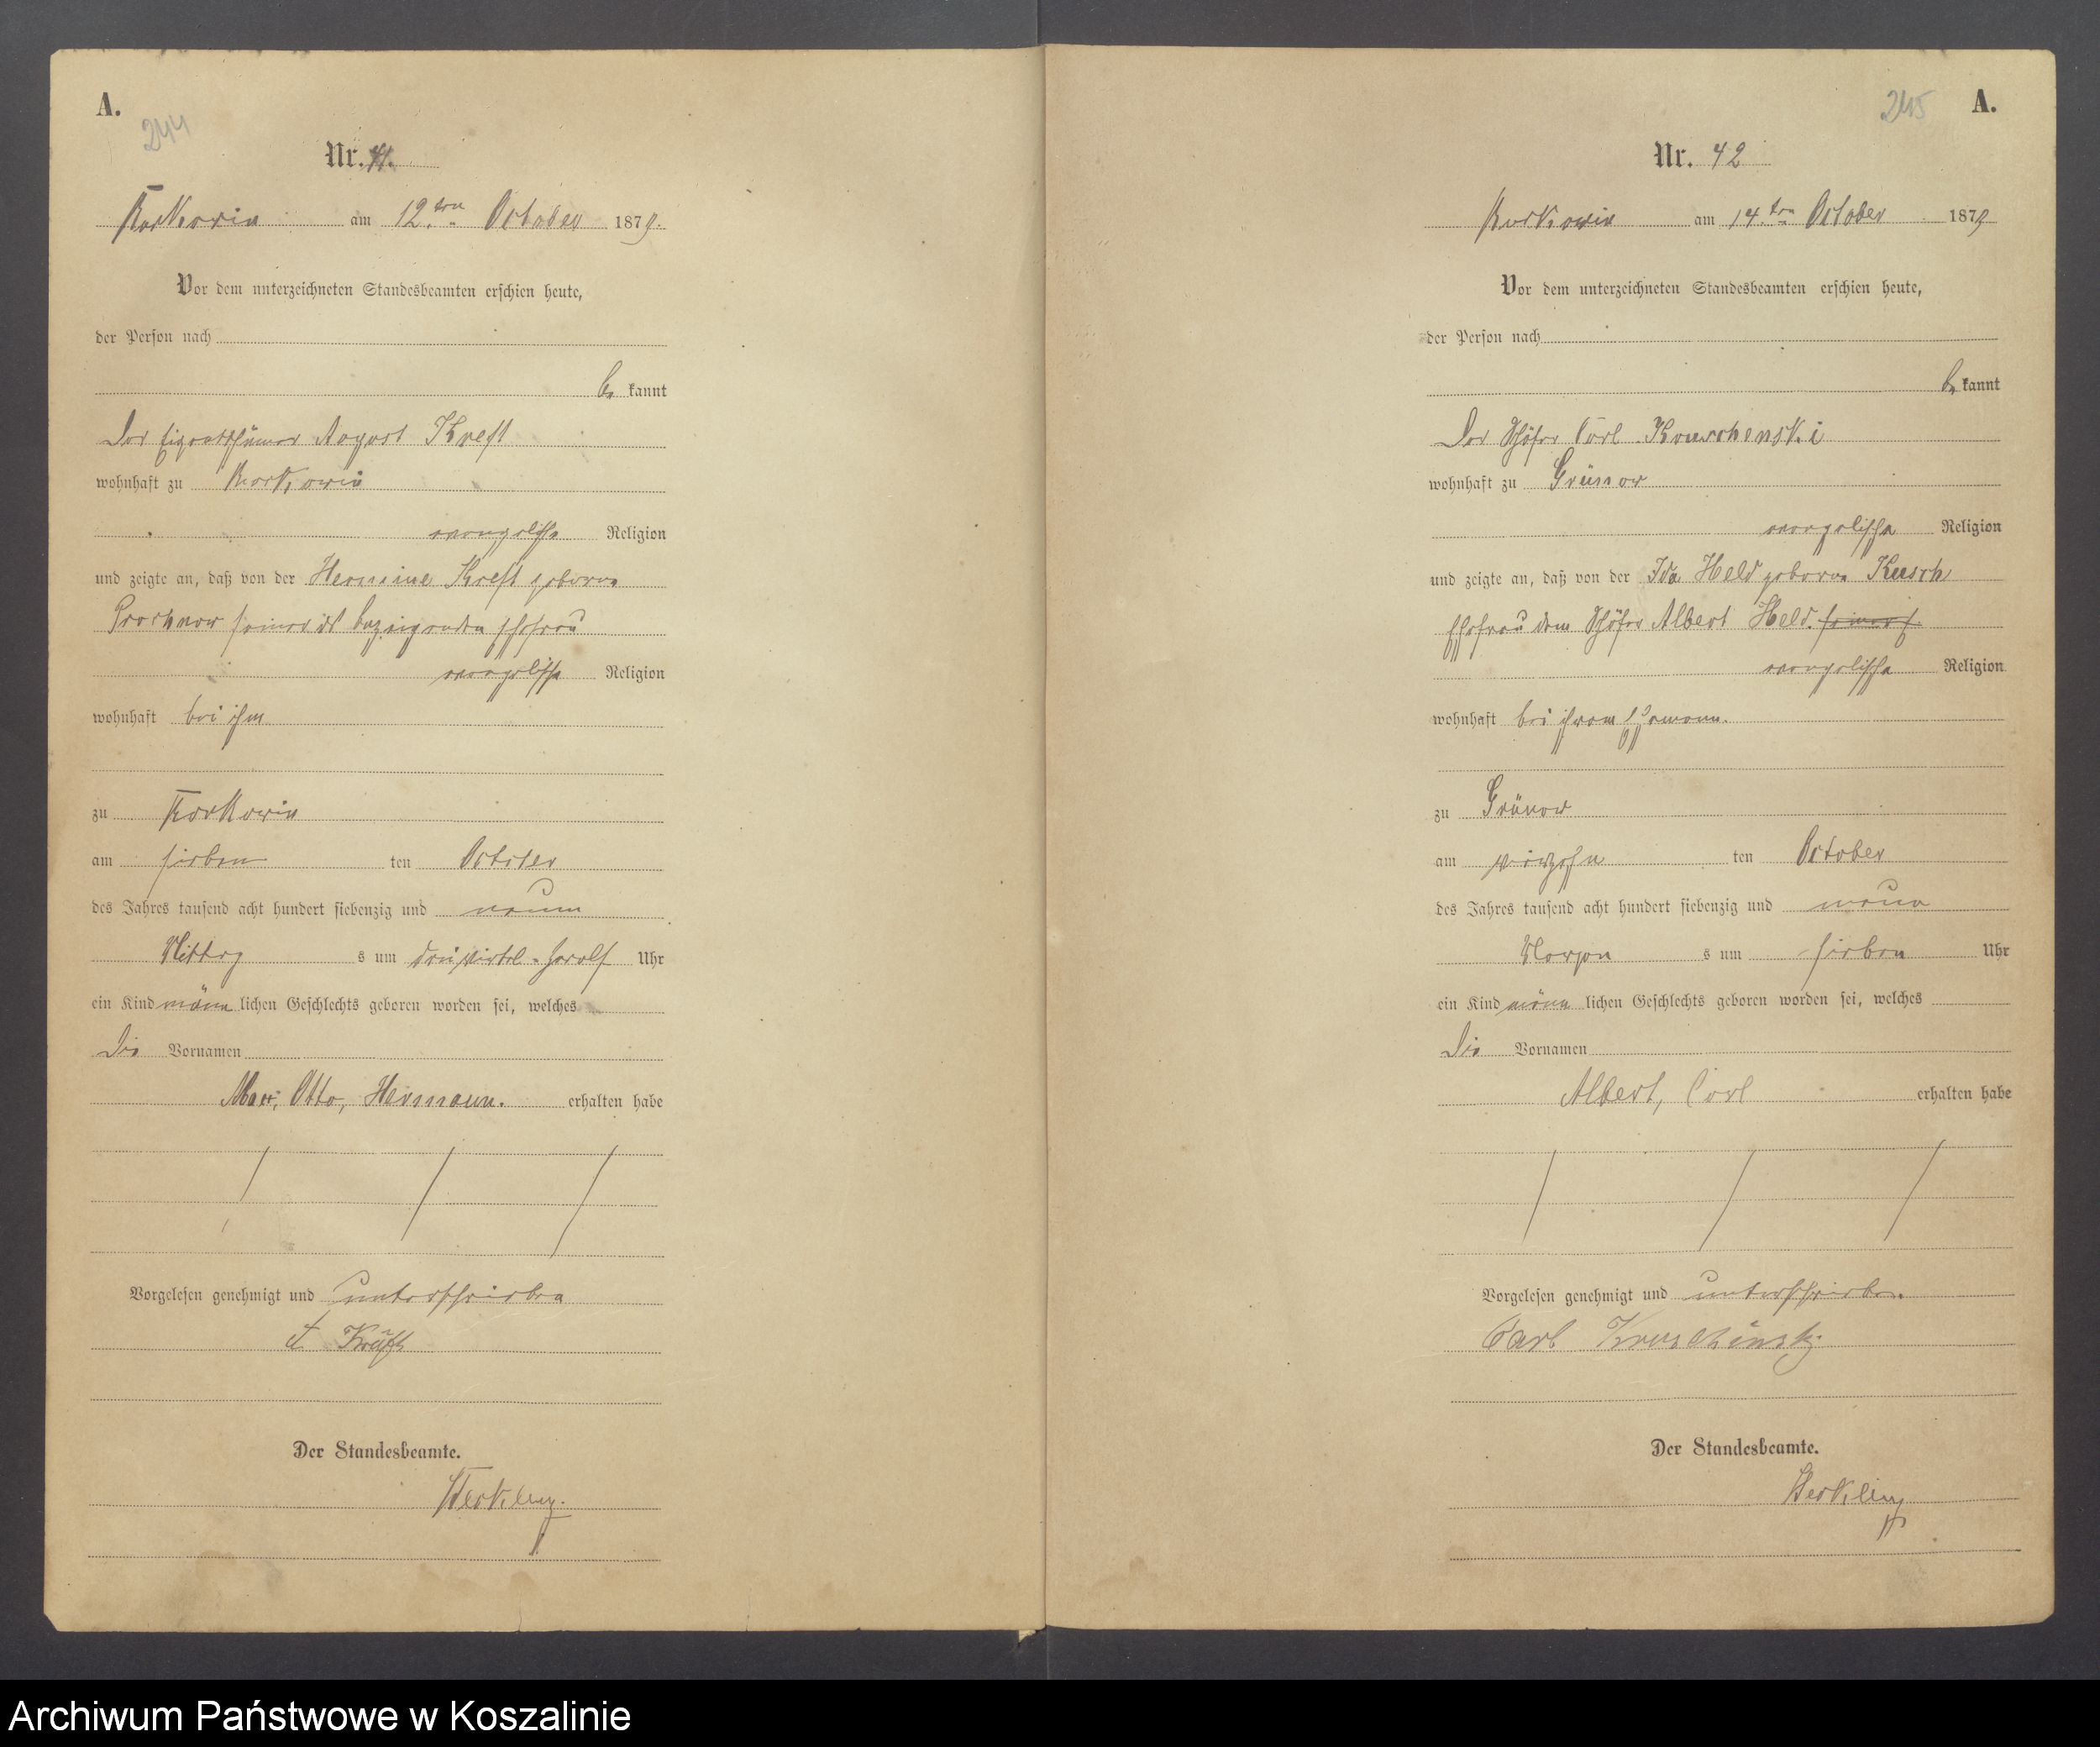 A.
244
Nr. 41.
Kurkowin am 12.ten October 1879.
Vor dem unterzeichneten Standesbeamten erschien heute,
der Person nach
be kannt
Der Eigenthümer August Kreft
wohnhaft zu
evangelischer Religion
und zeigte an, daß von der Hermine Kreft geborne
Prochnow seiner Ehefrau
evangelischer Religion
wohnhaft bei ihm
zu
am sieben ten October
des Jahres tausend acht hundert siebenzig und neun
Mittag s um dreiviertel zwölf Uhr
ein Kind männ lichen Geschlechts geboren worden sei, welches
die Vornamen
Max, Otto, Hermann. erhalten habe
Vorgelesen genehmigt und unterschrieben
Der Standesbeamte.
245 A.
Nr. 42
am 14.ten October 1879
Vor dem unterzeichneten Standesbeamten erschien heute,
der Person nach
be kannt
Der Schäfer Carl Kruschenski
wohnhaft zu Grünow
evangelischer Religion
und zeigte an, daß von der Ida Held geborne Kusch
Ehefrau dem Schäfer Albert Held.
evangelischer Religion
wohnhaft bei ihrem Ehemann.
zu Grünow
am vierzehn ten October
des Jahres tausend acht hundert siebenzig und neun
Morgen s um sieben Uhr
ein Kind männ lichen Geschlechts geboren worden sei, welches
die Vornamen
Albert, Carl erhalten habe
Vorgelesen genehmigt und unterschrieben.
Carl
Der Standesbeamte.
Archiwum Państwowe w Koszalinie